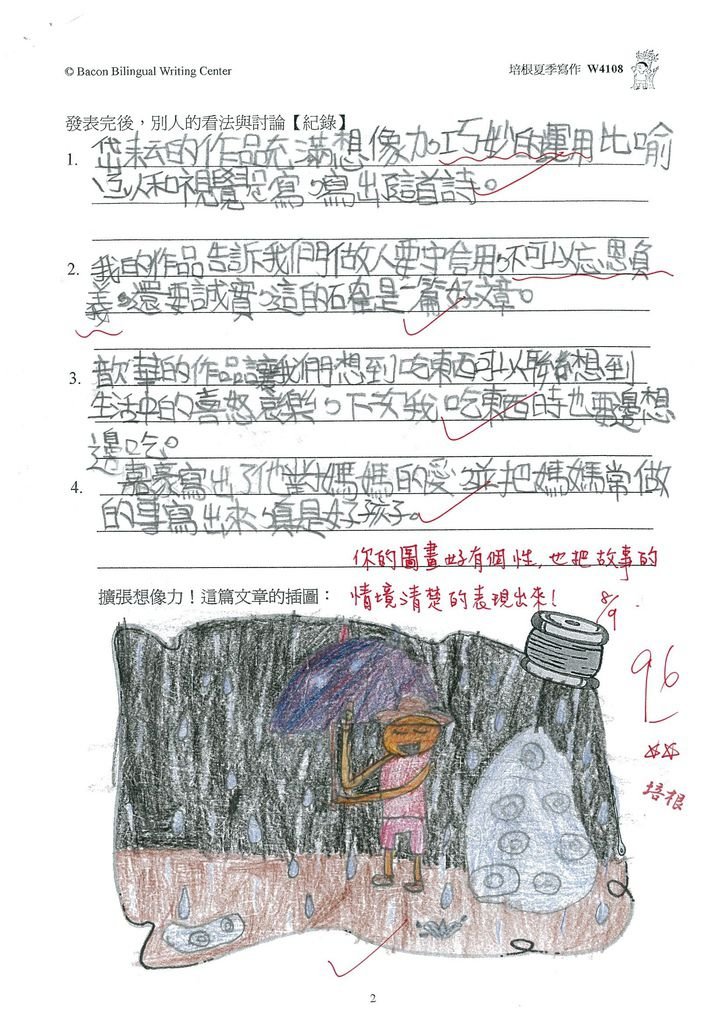 © Bacon Bilingual Writing Center
培根夏季寫作 W4108
發表完後，別人的看法與討論【紀錄】
1. 岱耘的作品充滿想像力。巧妙的運用比喻
以和視覺 寫，寫出這首詩。
2. 我的作品告訴我們做人要守信用，不可以忘恩負
義。還要誠實，這的確是一篇好文章。
3. 歆華的作品讓我們想到吃東西可以聯想到
生活中的喜怒哀樂。下次我吃東西時也要邊想
邊吃。
4. 嘉豪寫出了他對媽媽的愛，並把媽媽常做
的事寫出來，真是好孩子。
你的圖畫好有個性，也把故事的
擴張想像力！這篇文章的插圖：
情境清楚的表現出來！ 8/9
96
培根
2